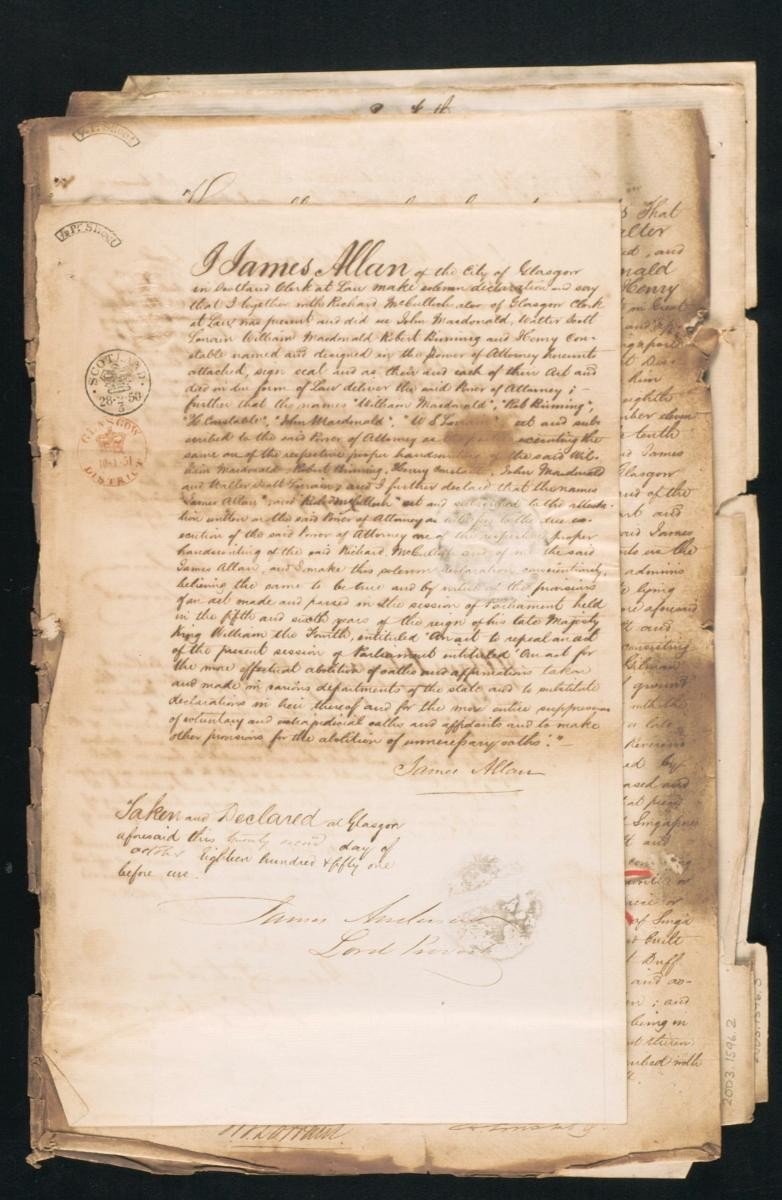 I James Allan of the City of Glasgow
in Scotland Clerk at Law make solemn declaration and say
that I together with Richard McCulloch also of Glasgow Clerk
at Law was present and did see John Macdonald, Walter Scott
Lorrain William Macdonald Robert Binning and Henry Con-
stable named and designed in the Power of Attorney hereunto
attached, sign seal and as their and each of their Act and
deed in due form of Law deliver the said Power of Attorney; -
further that the names "William Macdonald", "Rob Binning",
"H. Constable", "John Macdonald", "W S Lorrain" set and sub-
scribed to the said Power of Attorney as the parties executing the
same are of the respective proper handwriting of the said Wil-
liam Macdonald, Robert Binning, Henry Constable, John Macdonald
and Walter Scott Lorrain, and I further declare that the names
"James Allan", and "Richd McCulloch" set and subscribed to the attesta-
tion written on the said Power of Attorney as witnesses to the due ex-
ecution of the said Power of Attorney are of the respective proper
handwriting of the said Richard McCulloch and of me the said
James Allan, and I make this solemn declaration conscientiously,
believing the same to be true and by virtue of the provisions
of an act made and passed in the session of Parliament held
in the fifth and sixth years of the reign of his late Majesty
King William the Fourth, entituled "An act to repeal an act
of the present session of Parliament entituled "An act for
the more effectual abolition of oaths and affirmations taken
and made in various departments of the state and to substitute
declarations in lieu thereof and for the more entire suppression
of voluntary and extrajudicial oaths and affidavits and to make
other provisions for the abolition of unnecessary oaths."-
James Allan
Taken and Declared at Glasgow
aforesaid this twenty second day of
october Eighteen hundred & fifty one
before me.
James Anderson
Lord Provost
SCOTLAND
GLASGOW
DISTRICT
That
alter
and
nald
Henry
him
tenth
James
Glasgow
and of the
and
James
in the
adminis
lying
aforesaid
and
consisting
ground
with the
a late
Reverend
by
and
Singapore
and
or
built
Duff
and
; and
being in
therein
with
2003.1596.2
2003.1596.3